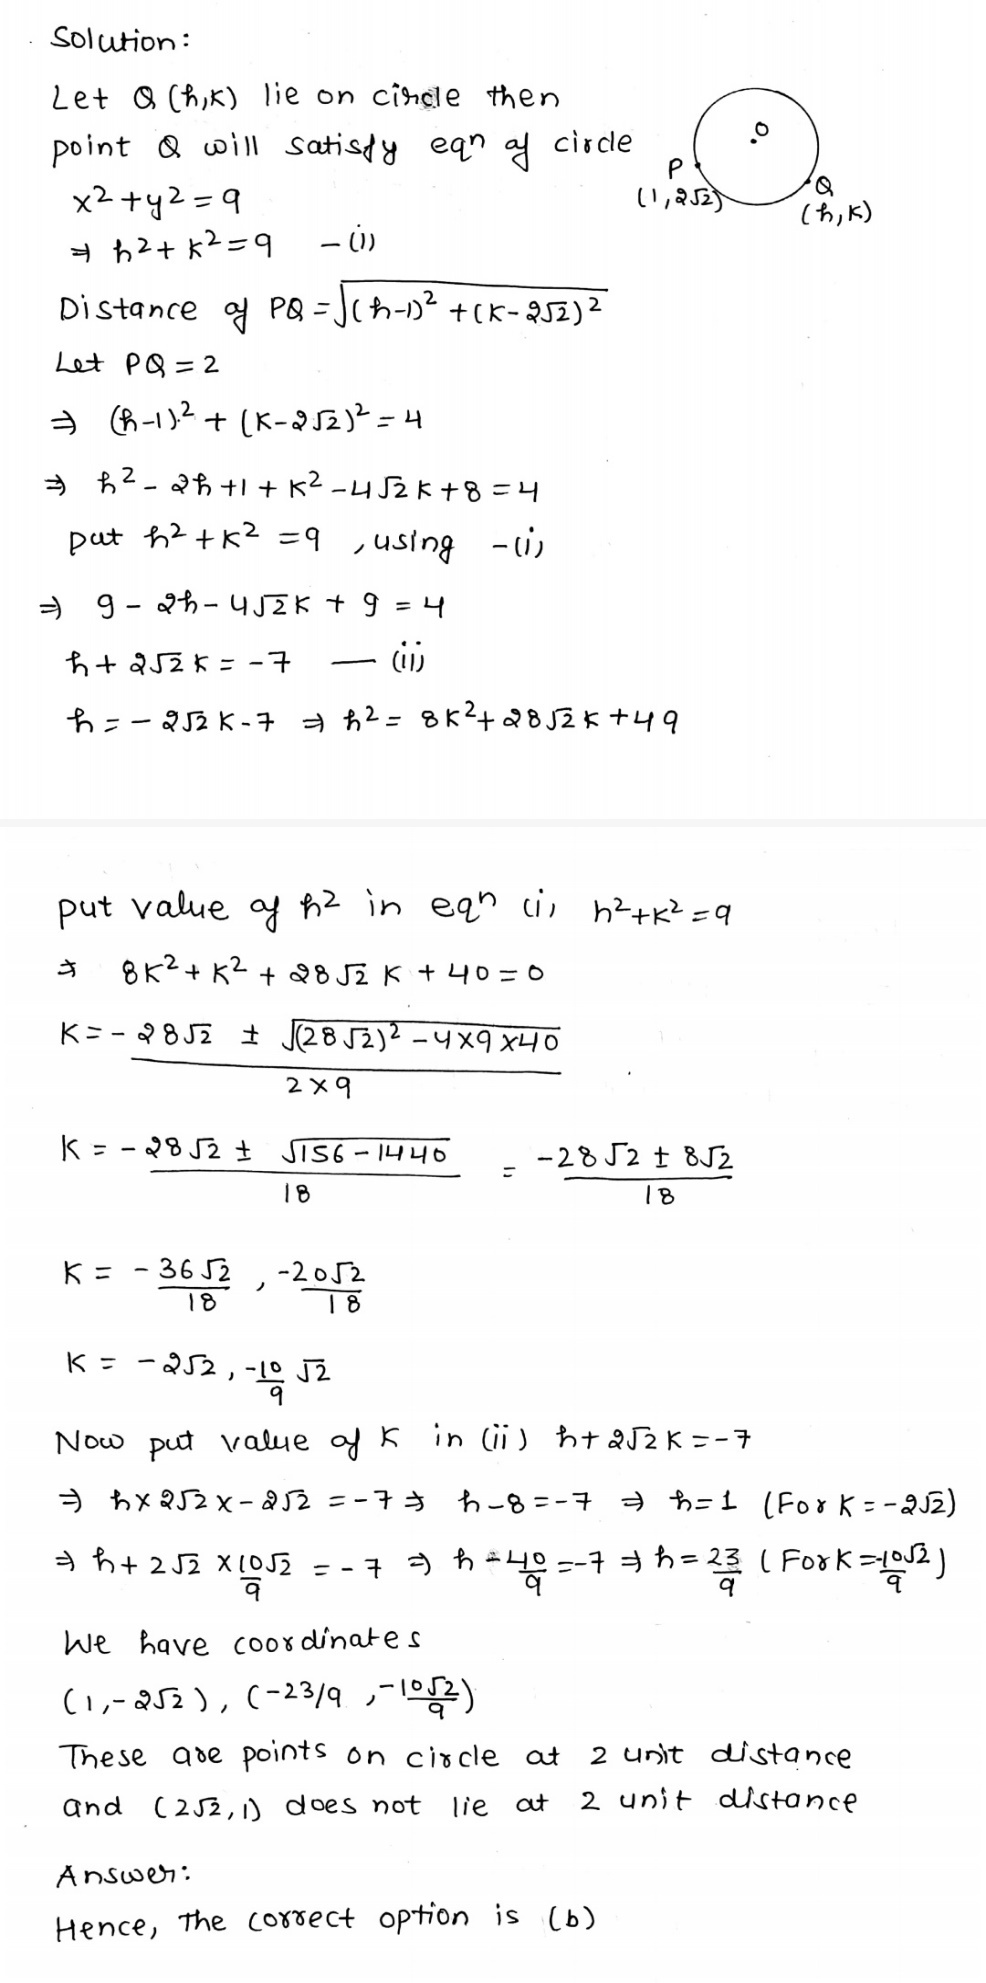 Solution:
Let Q (h,k) lie on circle then
point Q will satisfy eqn of circle
x²+y²=9
⇒ h²+k²=9 -(i)
O
P
(1,2√2)
Q
(h,k)
Distance of PQ = √(h-1)² + (k-2√2)²
Let PQ = 2
⇒ (h-1)² + (k-2√2)² = 4
⇒ h² - 2h +1 + k² - 4√2k + 8 = 4
put h² + k² = 9 , using -(i)
⇒ 9 - 2h - 4√2k + 9 = 4
h + 2√2 k = -7 — (ii)
h = - 2√2 k - 7 ⇒ h² = 8k² + 28√2 k + 49
put value of h² in eqn (i) h²+k² = 9
⇒ 8k² + k² + 28√2 k + 40 = 0
K = - 28√2 ± √(28√2)² - 4×9×40 / 2×9
K = - 28√2 ± √156 - 1440 / 18 = -28√2 ± 8√2 / 18
K = - 36√2 / 18 , -20√2 / 18
K = - 2√2 , -10/9 √2
Now put value of K in (ii) h + 2√2 k = -7
⇒ h × 2√2 × - 2√2 = -7 ⇒ h - 8 = -7 ⇒ h = 1 (For K = -2√2)
⇒ h + 2√2 × 10√2/9 = -7 ⇒ h - 40/9 = -7 ⇒ h = 23/9 ( For K = -10√2/9 )
We have coordinates
(1, -2√2 ), (-23/9 , -10√2/9)
These are points on circle at 2 unit distance
and (2√2,1) does not lie at 2 unit distance
Answer:
Hence, The correct option is (b)